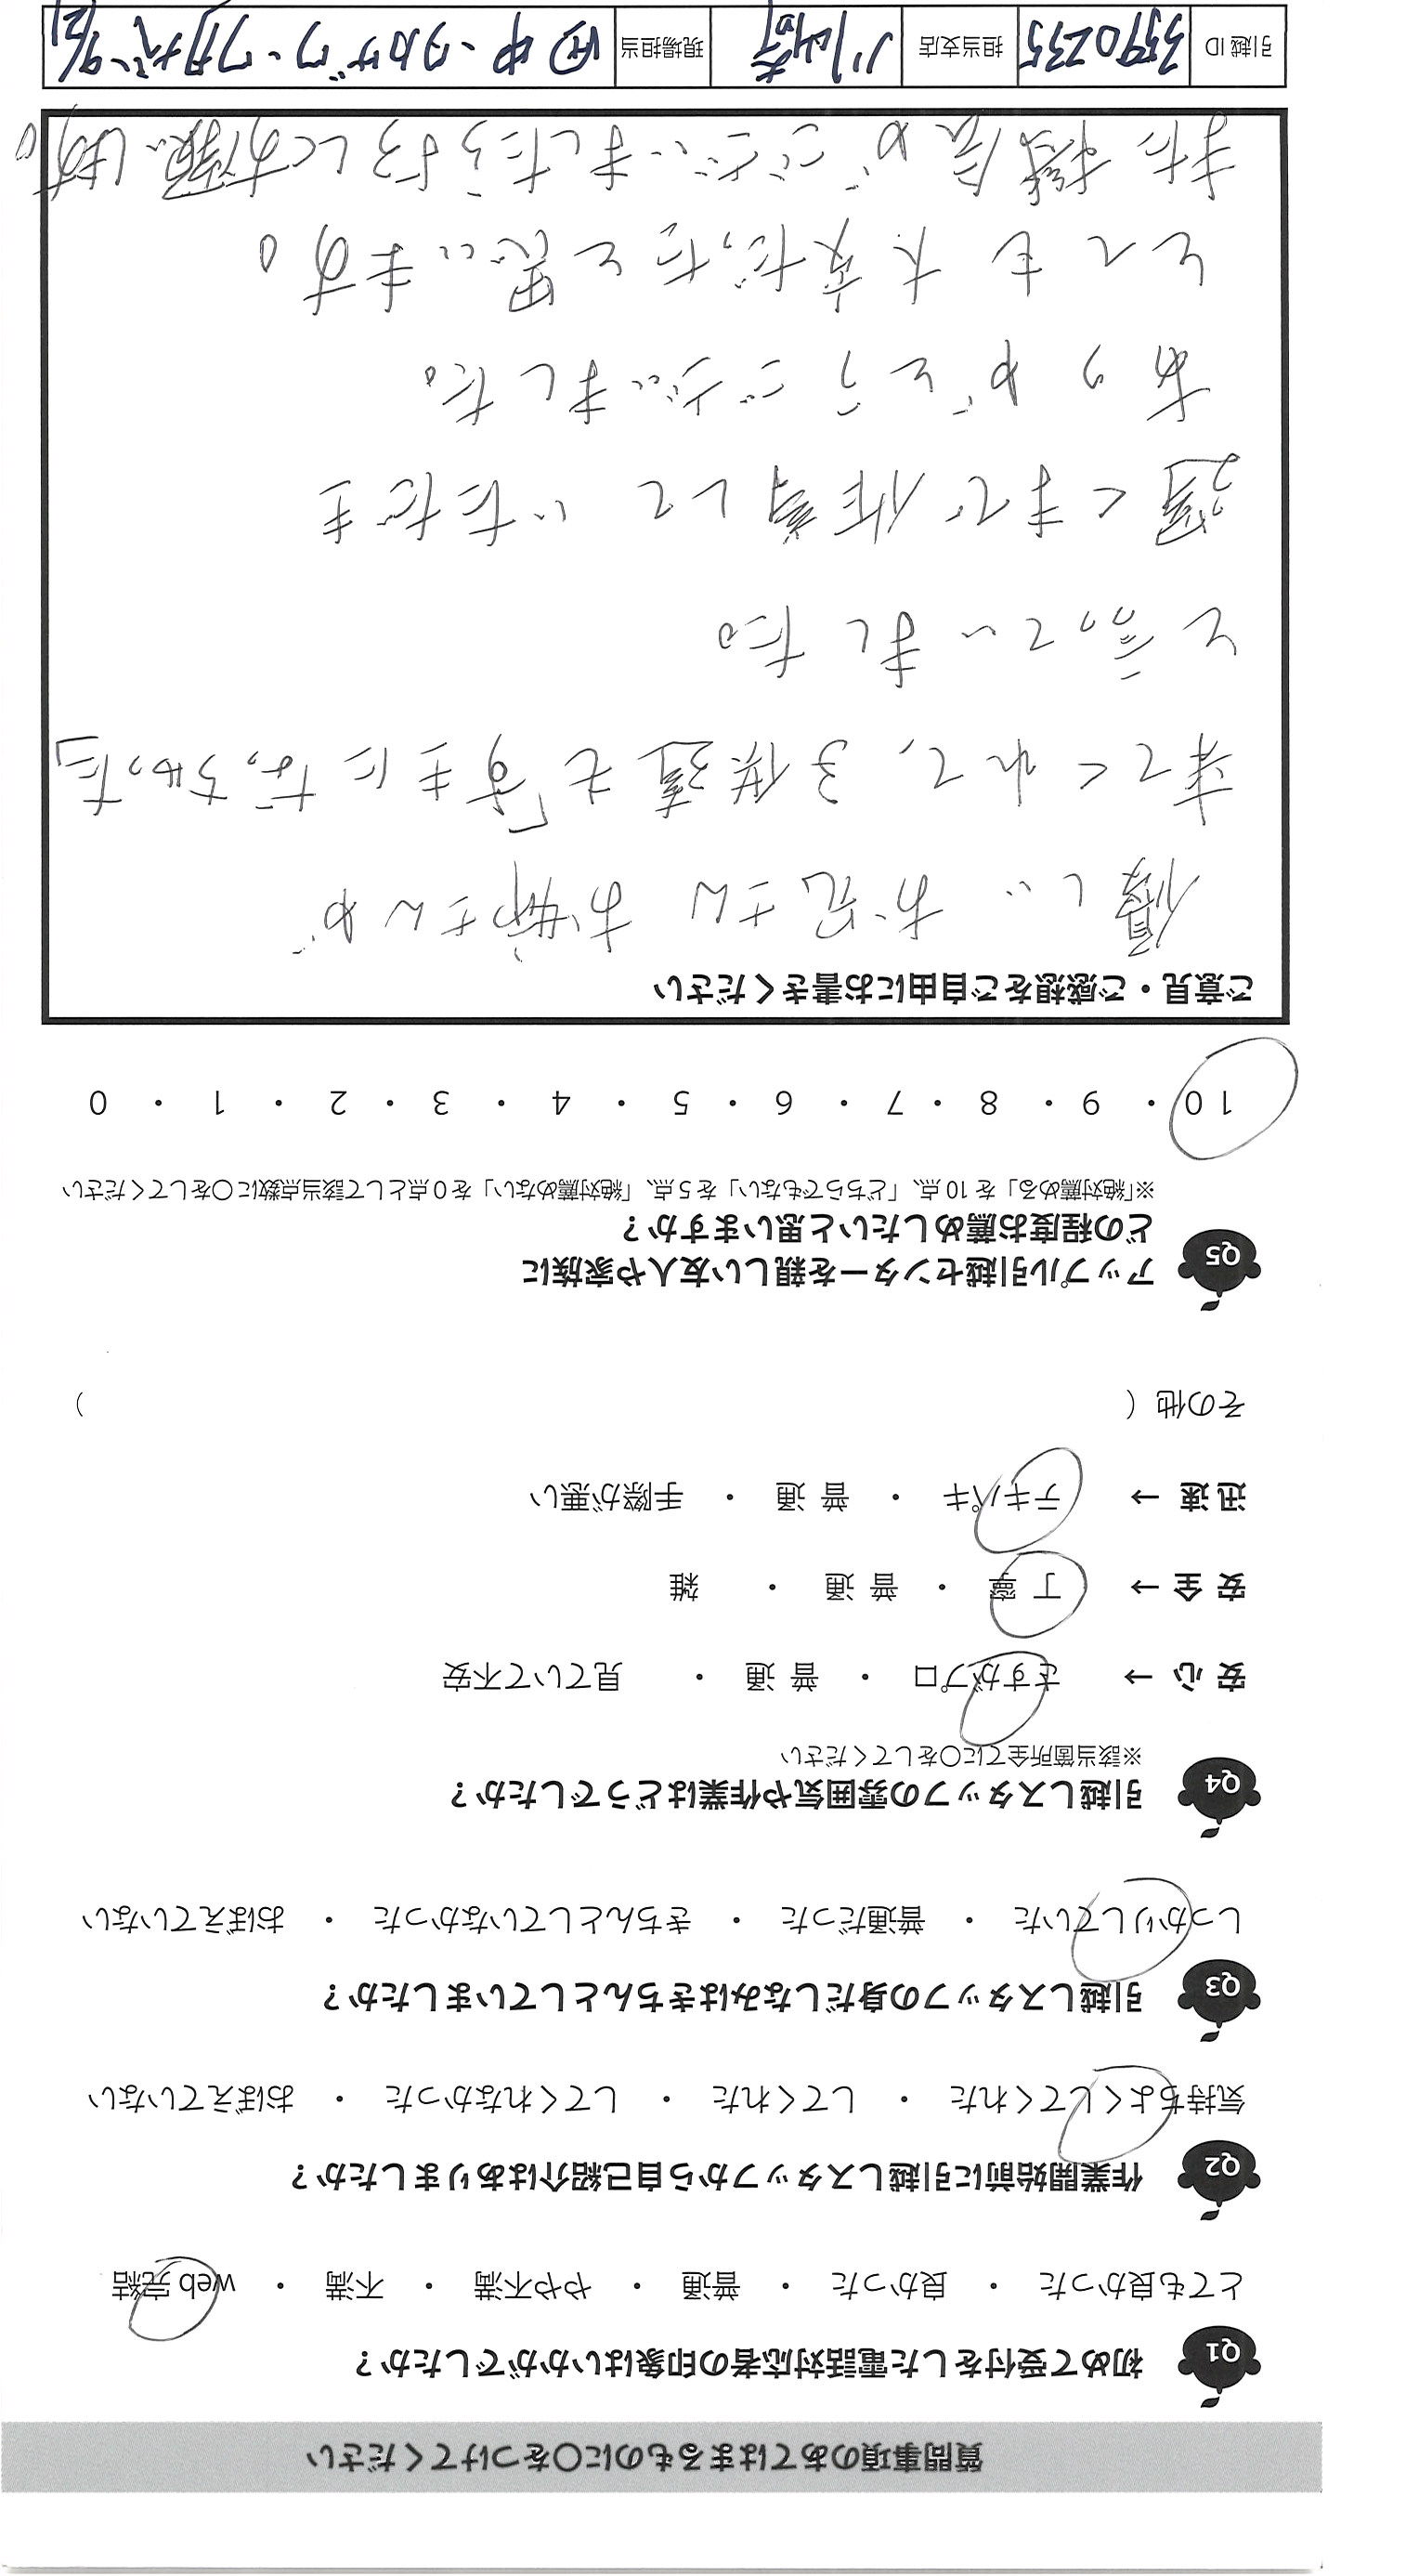 質問事項のあてはまるものに○をつけてください
Q1 初めて受付をした電話対応者の印象はいかがでしたか？
とても良かった ・ 良かった ・ 普通 ・ やや不満 ・ 不満 ・ web 完結
Q2 作業開始前に引越しスタッフから自己紹介はありましたか？
気持ちよくしてくれた ・ してくれた ・ してくれなかった ・ おぼえていない
Q3 引越しスタッフの身だしなみはきちんとしていましたか？
しっかりしていた ・ 普通だった ・ きちんとしていなかった ・ おぼえていない
Q4 引越しスタッフの雰囲気や作業はどうでしたか？
※該当箇所全てに○をしてください
安 心 → さすがプロ ・ 普 通 ・ 見ていて不安
安 全 → 丁 寧 ・ 普 通 ・ 雑
迅 速 → テキパキ ・ 普 通 ・ 手際が悪い
その他（ ）
Q5 アップル引越センターを親しい友人や家族に
どの程度お薦めしたいと思いますか？
※「絶対薦める」を 10 点、「どちらでもない」を 5 点、「絶対薦めない」を 0 点として該当点数に○をしてください
10 ・ 9 ・ 8 ・ 7 ・ 6 ・ 5 ・ 4 ・ 3 ・ 2 ・ 1 ・ 0
ご意見・ご感想をご自由にお書きください
優しい お兄さん お姉さんが
来てくれて、子供達も「すきになっちゃった」
と言っていました。
遅くまで作業していただき
ありがとうございました。
とても大変だったと思います。
また機会がございましたら宜しくお願いします。
引越 ID 3590235 担当支店 川崎 現場担当 田中・タカザワ・